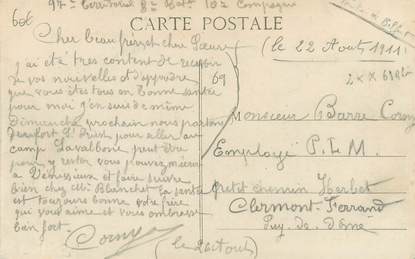 606
97e Territorial 8e Bat. 10e Compagnie
CARTE POSTALE
(le 22 Aout 1911
Cher beau frère et cher Soeur
j'ai été très content de recevoir
de vos nouvelles et d'apprendre
que vous êtes tous en Bonne santé
pour moi j'en suis de même
Dimanche prochain nous partons
du fort St pour aller au
camp Lavalbonne peut être
pour y rester vous pouvez
a Vénissieux et faire suivre
bien chez Mr Blanchet la santé
est toujours bonne votre frère
qui vous aime et vous embrasse
bien fort.
69
Monsieur Barre
Employé P.L.M.
petit chemin Herbet
Clermont-Ferrand
Puy-de-Dôme